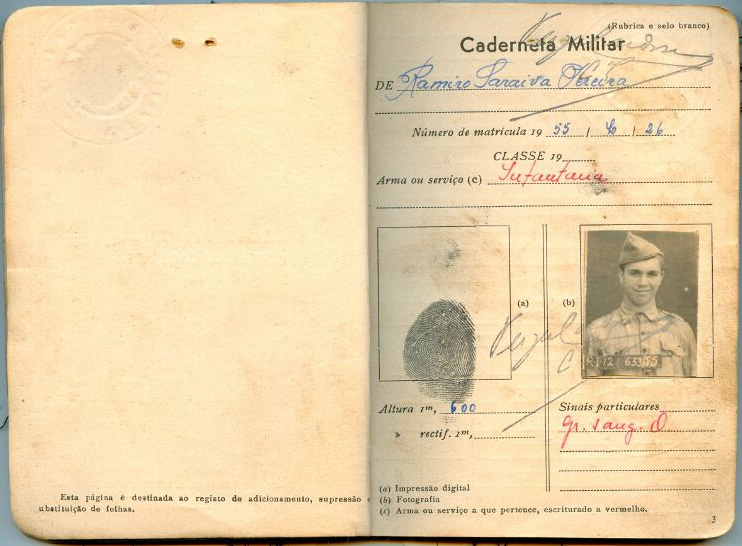 Esta página é destinada ao registo do adicionamento, supressão e
ubstituição de folhas.
(Rubrica e selo branco)
Caderneta Militar
DE Ramiro Saraiva Pereira
Número de matrícula 19 55 / E / 26
CLASSE 19
Arma ou serviço (c) Infantaria
(a)
(b)
R.I.12 653/55
Altura 1m, 600
» rectif. 1m,
Sinais particulares
gr. sang. O
(a) Impressão digital
(b) Fotografia
(c) Arma ou serviço a que pertence, escriturado a vermelho.
3